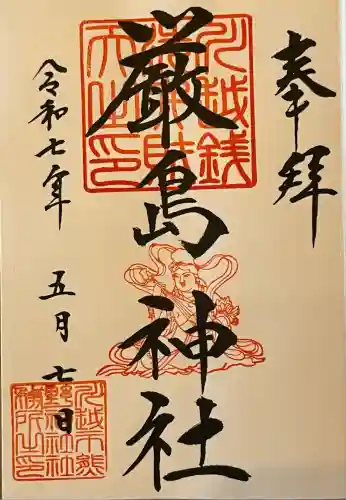 奉拝
厳島神社
令和七年 五月 七日